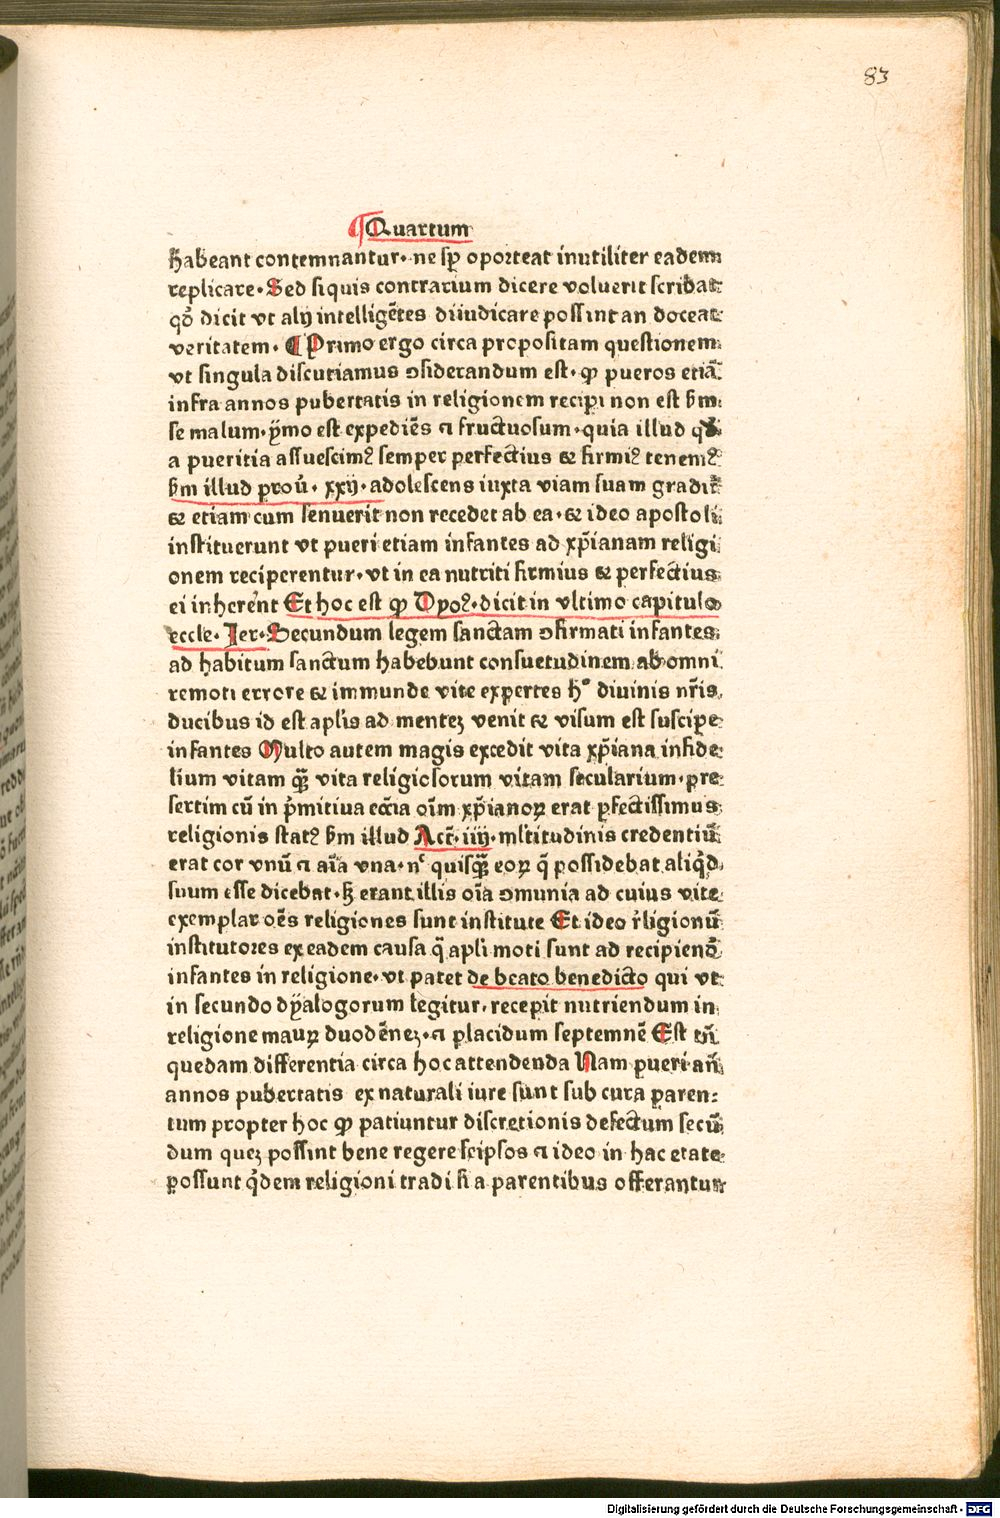 83
¶Quartum
habeant contemnantur· ne sꝑ oporteat inutiliter eadem
replicare· Sed siquis contrarium dicere voluerit scribat:
qđ dicit vt alij intelligētes diiudicare possint an doceat
veritatem· ¶ Primo ergo circa propositam questionem:
vt singula discutiamus ↄsiderandum est· ꝙ pueros etiā:
infra annos pubertatis in religionem recipi non est ẜm:
se malum· ẏmo est expediēs ⁊ fructuosum· quia illud qđ:
a pueritia assuescimꝰ semper perfectius & firmiꝰ tenemꝰ
ẜm illud prouẽ· xxij· adolescens iuxta viam suam gradit᷑
& etiam cum senuerit non recedet ab ea· & ideo apostoli
instituerunt vt pueri etiam infantes ad xp̄ianam religi
onem reciperentur· vt in ea nutriti firmius & perfectius:
ei inherēnt Et hoc est ꝙ Dyoꝰ· dicit in vltimo capitulo
eccle· Ier· Secundum legem sanctam ↄfirmati infantes:
ad habitum sanctum habebunt consuetudinem ab omni
remoti errore & immunde vite expertes hͦ diuinis nr̄is,
ducibus id est apl̄is ad menteꝫ venit & visum est suscipe:
infantes Multo autem magis excedit vita xp̄iana infide:
lium vitam qꝫ̄ vita religiosorum vitam secularium· pre:
sertim cū in p̄mitiua ecc̄ia oīm xp̄ianoꝝ erat ꝑfectissimus:
religionis statꝰ ẜm illud Act̄· iiij· ml̄titudinis credentiū:
erat cor vnū ⁊ aīa vna· nᶜ quisqꝫ̄ eoꝝ q̄ possidebat aliq̇d:
suum esse dicebat· ꜩ erant illis oīa ↄmunia ad cuius vite:
exemplar oēs religiones sunt institute Et ideo r̄ligionū:
institutores ex eadem causa q̄ apl̄i moti sunt ad recipienð
infantes in religione· vt patet de beato benedicto qui vt:
in secundo dẏalogorum legitur· recepit nutriendum in:
religione mauꝝ duodēneꝫ· ⁊ placidum septemnē Est tn̄:
quedam differentia circa hoc attendenda Nam pueri an̄:
annos pubertatis ex naturali iure sunt sub cura paren:
tum propter hoc ꝙ patiuntur discretionis defectum secū:
dum queꝫ possint bene regere seipsos ⁊ ideo in hac etate:
possunt q̇dem religioni tradi si a parentibus offerantur
Digitalisierung gefördert durch die Deutsche Forschungsgemeinschaft - DFG